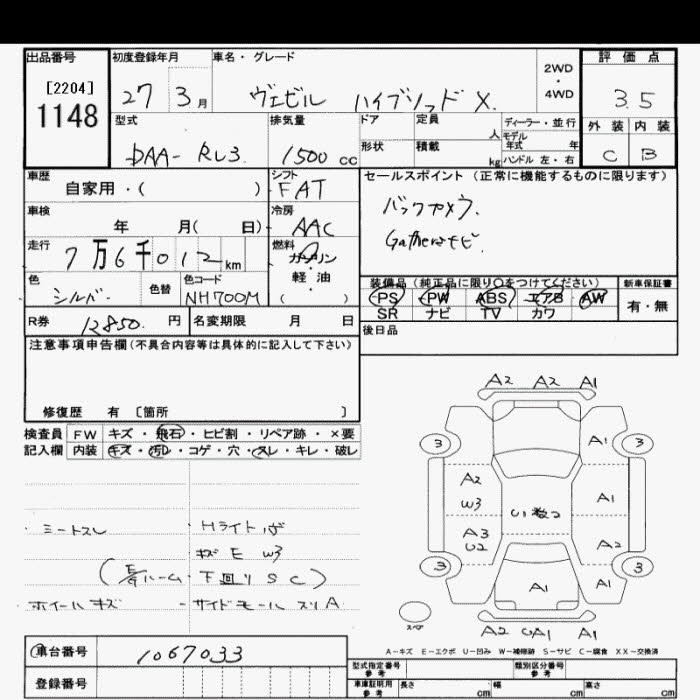 出品番号 初度登録年月 車名・グレード 2WD・4WD 評価点
[2204]
1148
27 3月 ヴェゼル ハイブリッド X. 3.5
型式 排気量 ドア 定員 人 ディーラー・並行 外装 内装
DAA- RU3. 1500 cc 形状 積載 kg モデル年式 年 ハンドル 左・右 C B
車歴 自家用・( ) シフト FAT セールスポイント (正常に機能するものに限ります)
車検 年 月( 日) 冷房 AAC バックカメラ.
走行 7万6千012 km 燃料 ガソリン・軽・油 ( ) Gathersナビ.
色 シルバー. 色替 色コード NH700M 装備品 (純正品に限り○をつけてください) 新車保証書
PS PW ABS エアB AW 有・無
SR ナビ TV カワ
R券 12850. 円 名変期限 月 日 後日品
注意事項申告欄(不具合内容等は具体的に記入して下さい)
修復歴 有 〔箇所 〕
検査員 FW キズ・飛石・ヒビ割・リペア跡・×要
記入欄 内装 キズ・汚レ・コゲ・穴・スレ・キレ・破レ
・シートスレ ・Hライト
キズ E W3
下回り S C)
ホイールキズ -サイドモール スリA
A2 A2 A1
3 A1 3
A2 W3 A1
U1 数2
A3 U2 A2
3 A1 A1 3
スペア A2 UA1 A1
A-キズ E-エクボ U-凹み W-補修跡 S-サビ C-腐食 XX-交換済
車台番号 1067033
登録番号
型式指定番号 参考 類別区分番号 参考
車庫証明用 参考 長さ cm 幅 cm 高さ cm